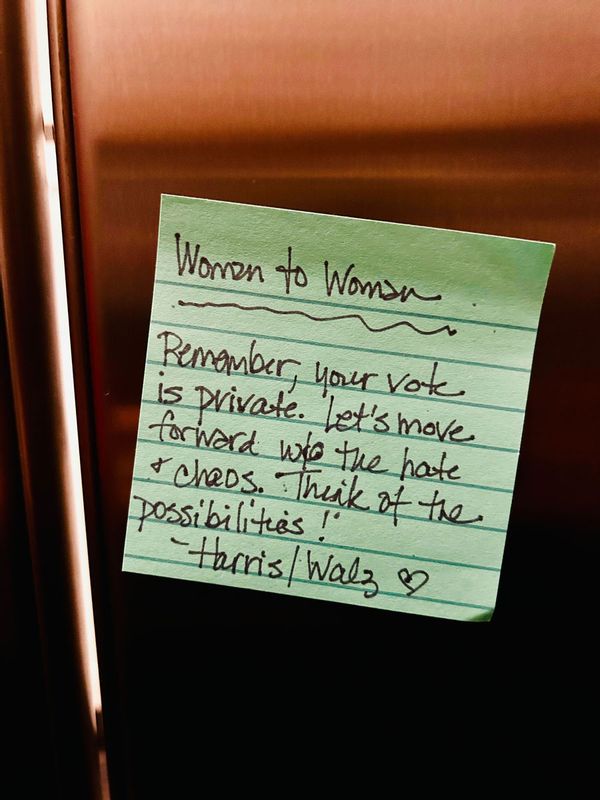 Woman to Woman
Remember, your vote
is private. Let's move
forward w/o the hate
& chaos. Think of the
possibilities!
- Harris/Walz ♡